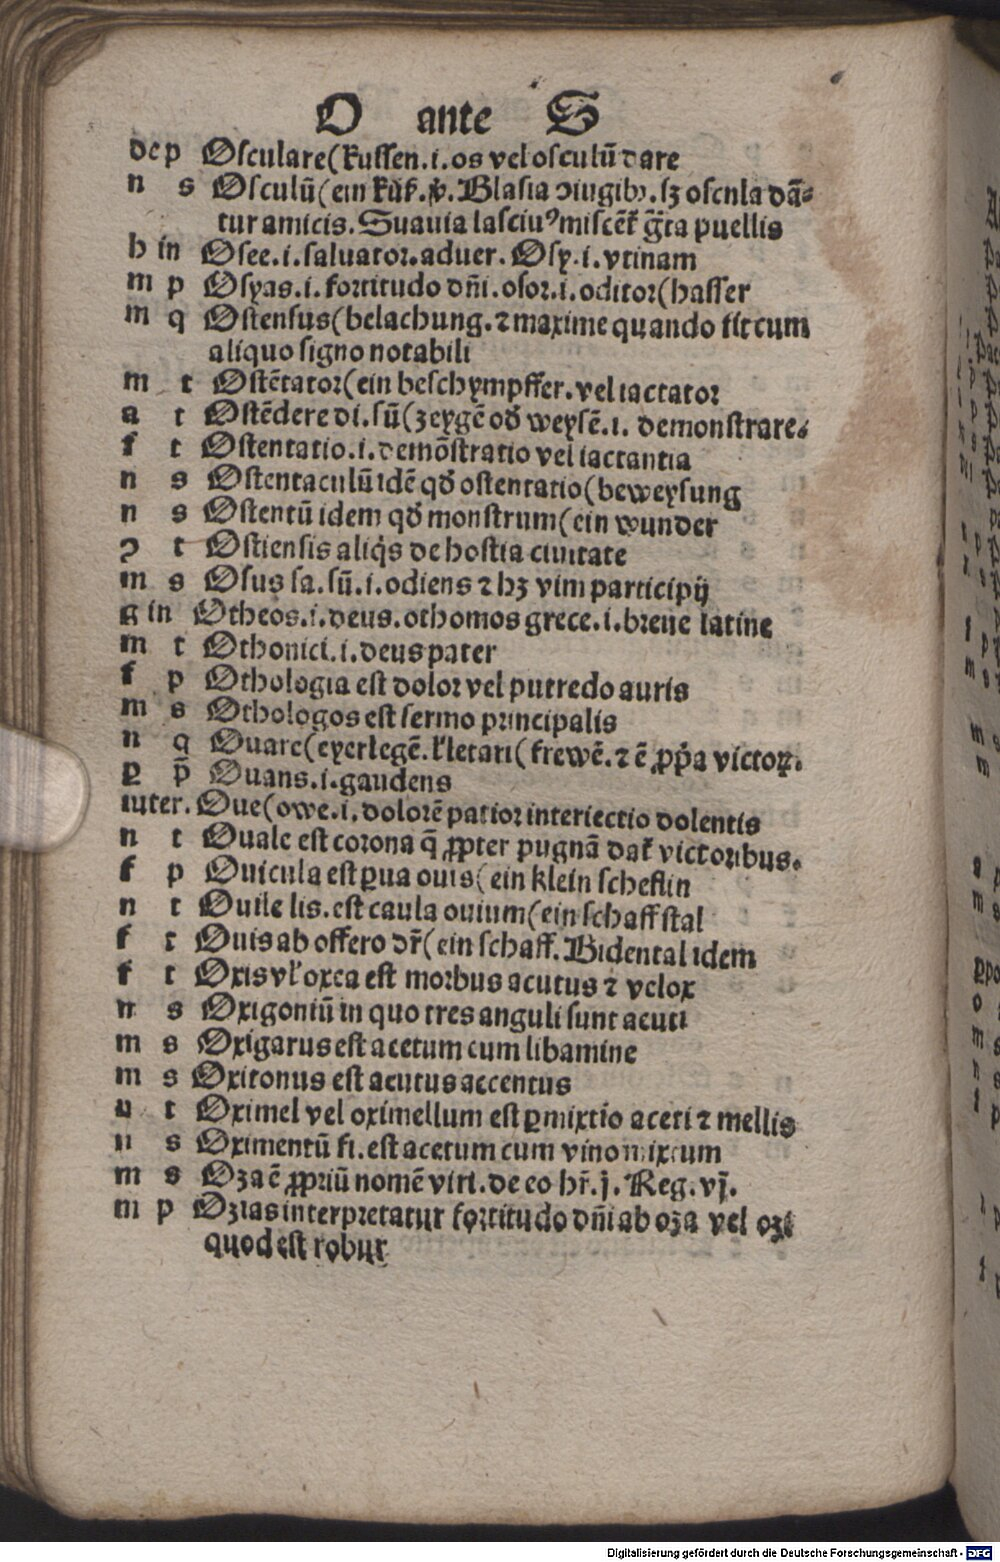 O ante S
de p Osculare(kussen.i.os vel osculū dare
n s Osculū(ein kuſz.
Blasia ɔiugibꝫ.sꝫ oscula dā⸗
tur amicis.Suauia lasciuꝰ miscēt g̃ta puellis
h in Osee.i.saluator.aduer. Osy.i.vtinam
m p Osyas.i.fortitudo dñi.osor.i.oditor(hasser
m q Ostensus(belachung.⁊ maxime quando fit cum
aliquo signo notabili
m t Ostētator(ein beschympffer.vel iactator
a t Ostēdere di.sū(zeygē od̕ weysē.i. demonstrare.
f t Ostentatio.i.demōstratio vel iactantia
n s Ostentaculū idē qd̕ ostentatio(beweysung
n s Ostentū idem qd̕ monstrum(ein wunder
ɔ t Ostiensis aliq̇s de hostia ciuitate
m s Osus sa.sū.i.odiens ⁊ hꝫ vim participij
g in Otheos.i.deus.othomos grece.i.breue latine
m t Othonici.i.deus pater
f p Othologia est dolor vel putredo auris
m s Othologos est sermo principalis
n q Ouare(eyerlegē.vl̕ letari(frewē.⁊ ē ꝓp̕a victoꝝ.
ꝑ p̄ Ouans.i.gaudens
inter. Oue(owe.i.dolorē patior interiectio dolentis
n t Ouale est corona q̄ ꝓpter pugnā dat̕ victoribus.
f p Ouicula est ꝑua ouis(ein klein scheflin
n t Ouile lis.est caula ouium(ein schaffstal
f t Ouis ab offero dr̄(ein schaff.Bidental idem
f t Oxis vl̕ oxea est morbus acutus ⁊ velox
n s Oxigoniū in quo tres anguli sunt acuti
m s Oxigarus est acetum cum libamine
m s Oxitonus est acutus accentus
n t Oximel vel oximellum est ꝑmixtio aceti ⁊ mellis
n s Oximentū ti.est acetum cum vino mixtum
m s Oza ē ꝓpriū nomē viri.de eo hr̄.j. Reg.vj.
m p Ozias interpretatur fortitudo dñi ab oza vel ozi
quod est robur
Digitalisierung gefördert durch die Deutsche Forschungsgemeinschaft - DFG